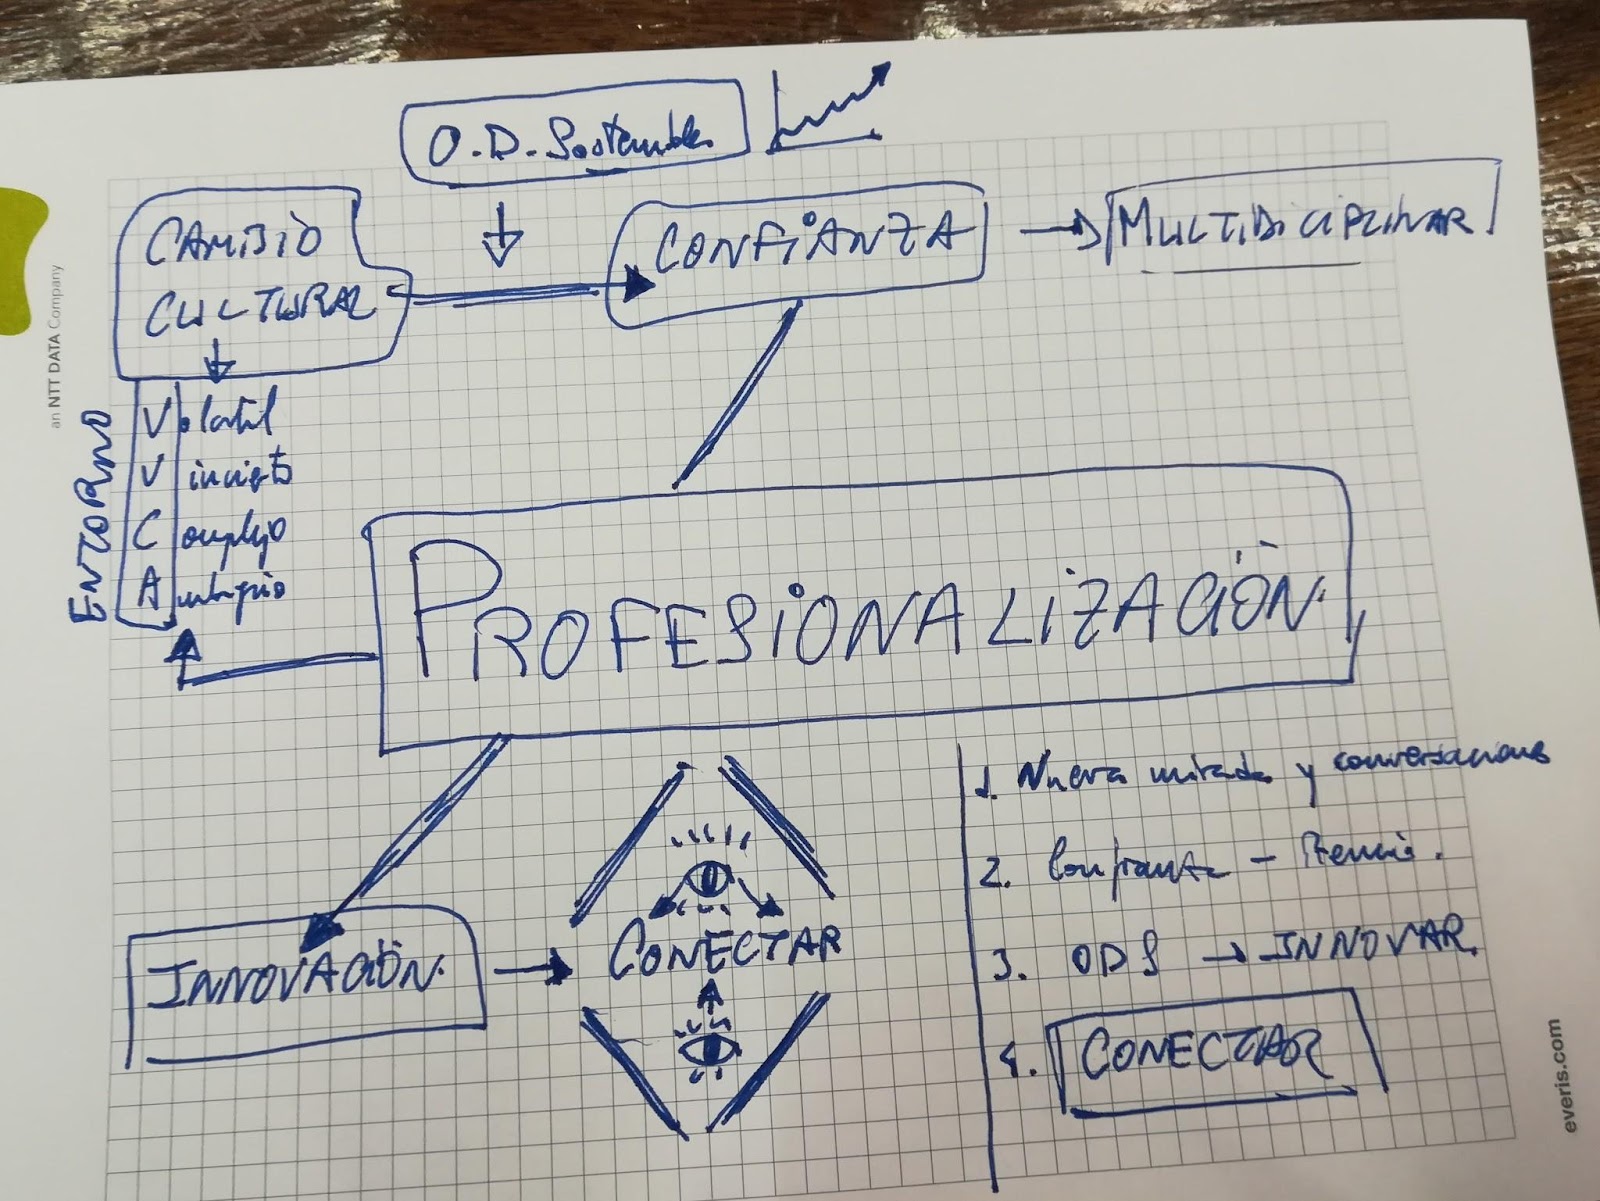 O.D. Sostenibles
CAMBIO
CULTURAL
CONFIANZA
MULTIDICIPLINAR
ENTORNO
V olatil
V incierto
C omplejo
A mbiguo
PROFESIONALIZACIÓN.
INNOVACIÓN.
CONECTAR
1. Nueva mirada y conversaciones
2. Confianza -
3. ODS → INNOVAR.
4. CONECTAR
an NTT DATA Company
everis.com